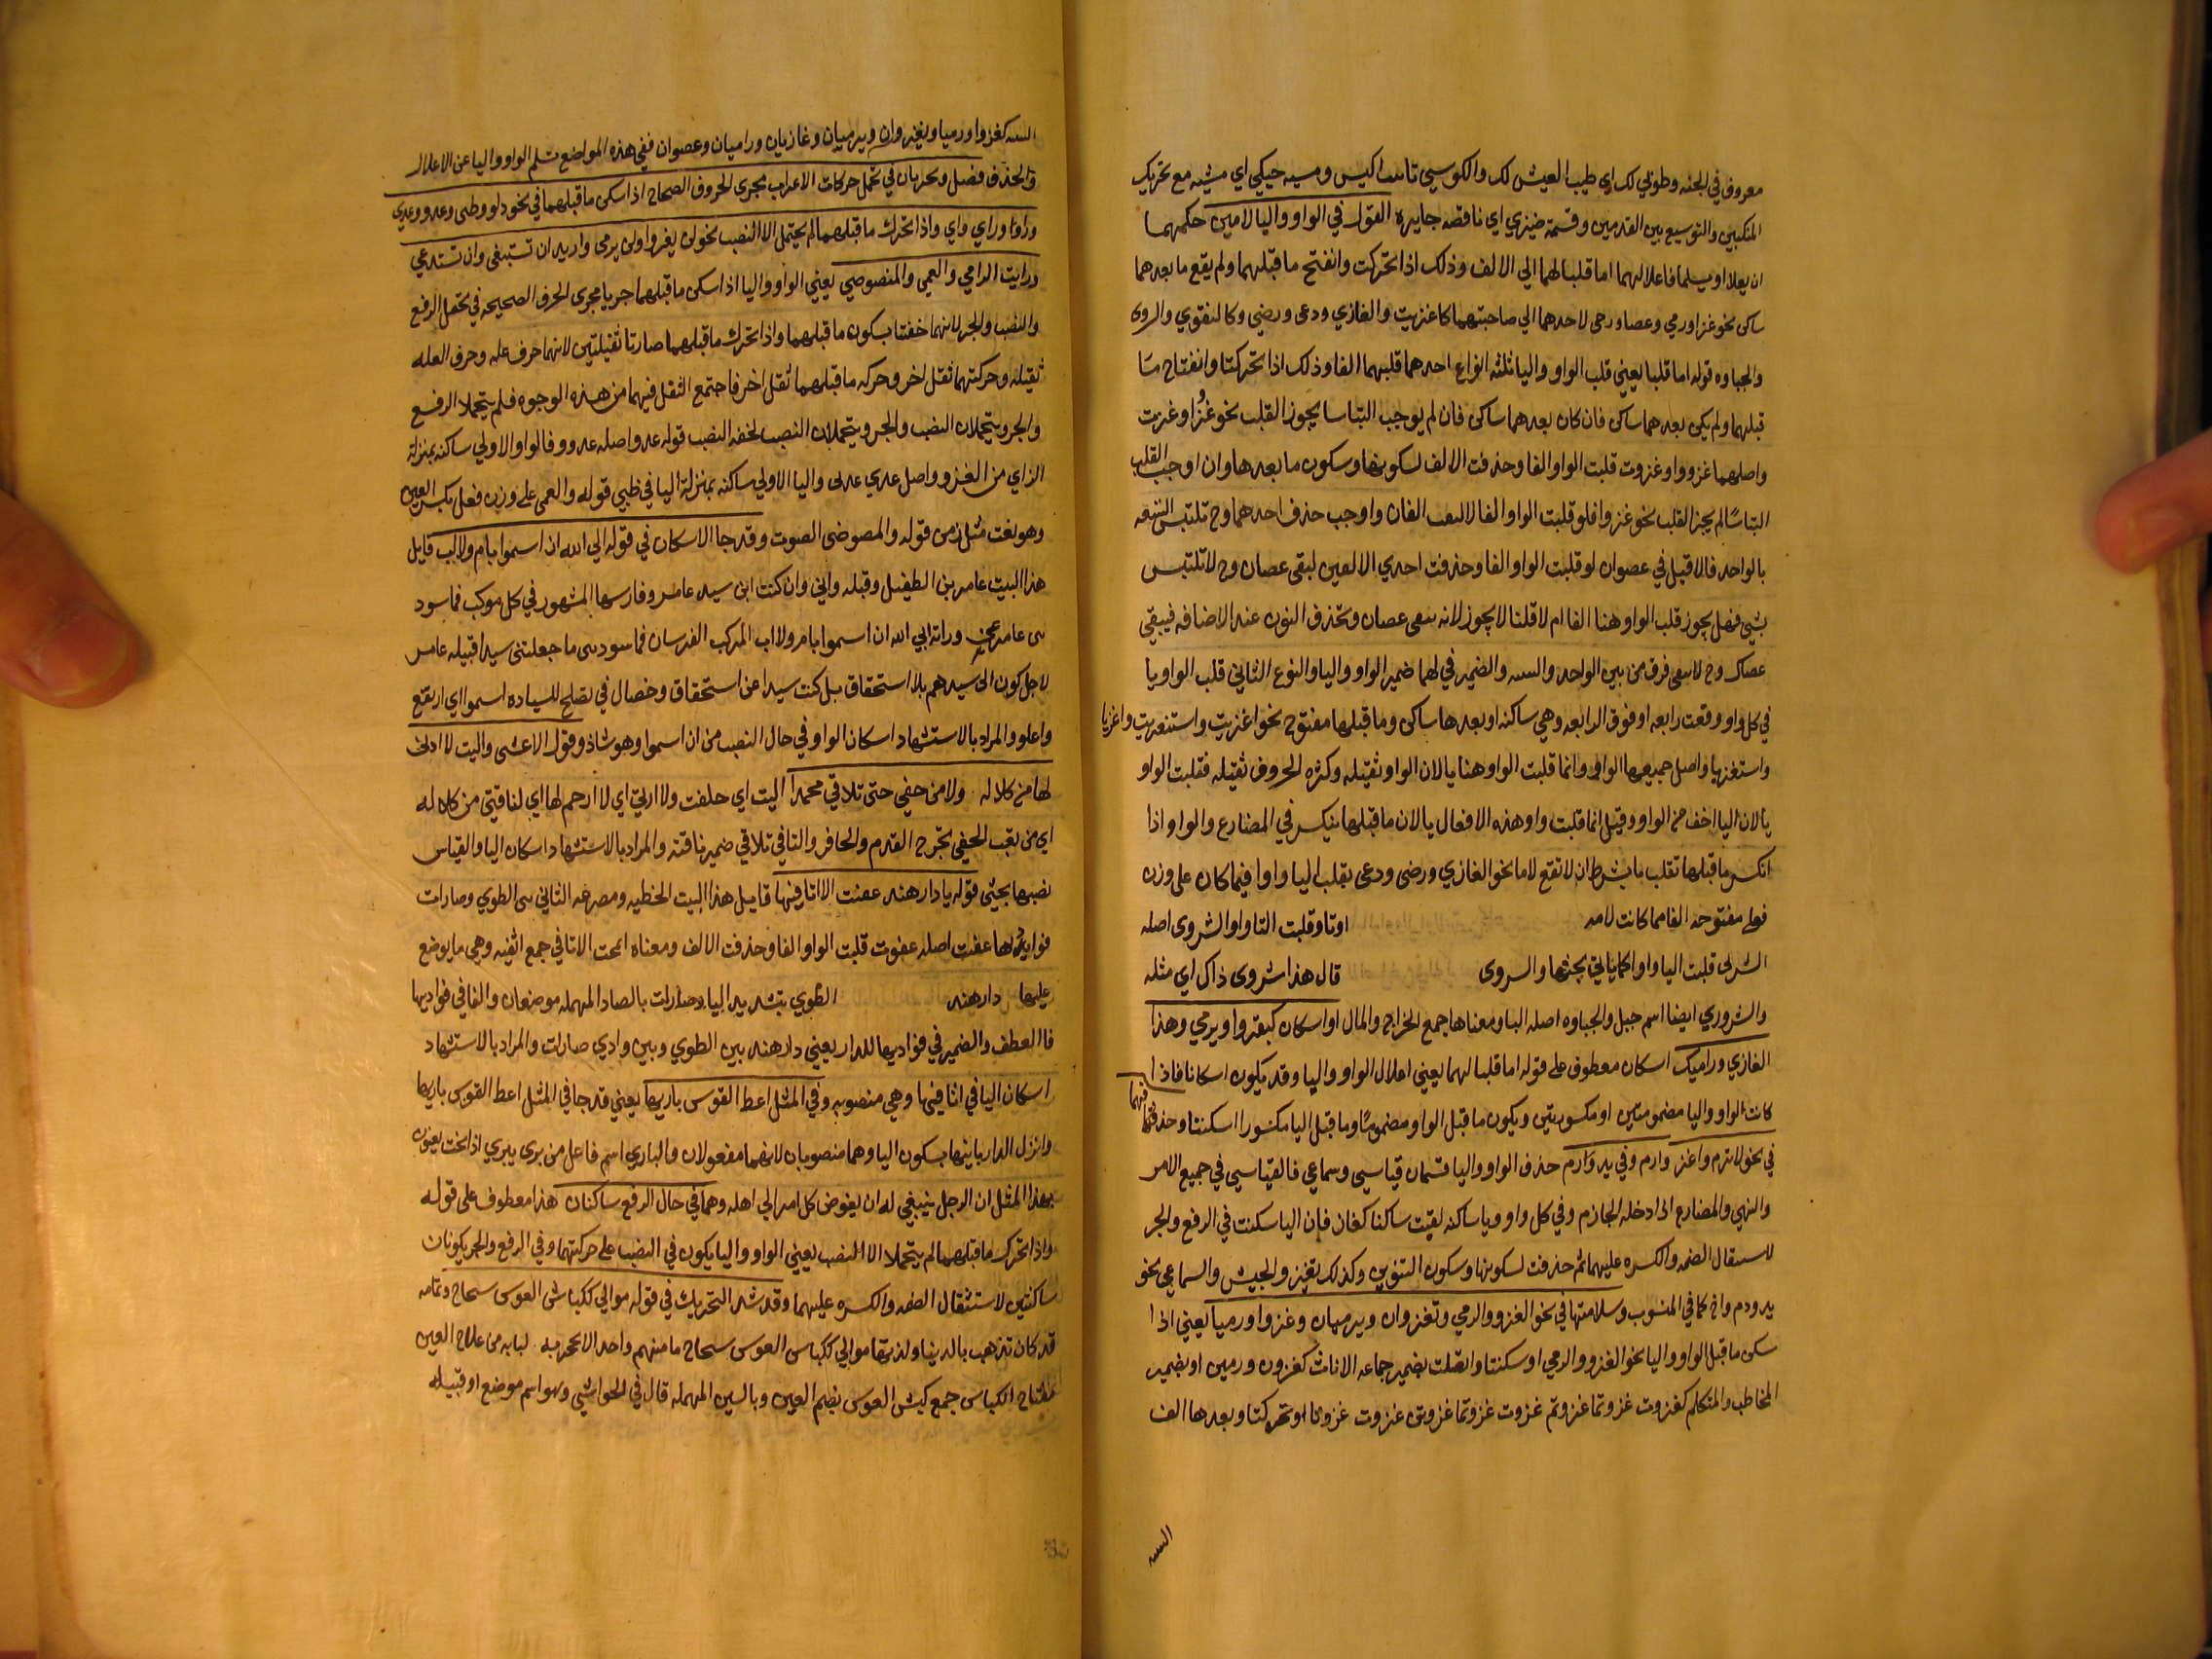 معروف في الجنه وطوبي لك اي طيب العيش لك والكوسي تانيث اكيس ومشيه حيكي اي مشيه مع تحريك
المنكبين والتوسيع بين القدمين وقسمة ضيزي اي ناقصه جايره القول في الواو واليا لامين حكمهما
ان يعلا او يسلما فاعلالهما اما قلبا لهما الي الالف وذلك اذا تحركت وانفتح ما قبلهما ولم يقع ما بعدهما
ساكن نحو غزا ورمي وعصا ورحي لاحدهما الي صاحبتهما كاغزيت والغازي ودعي ورضي وكالتقوي والشروي
والجباوه قوله اما قلبا يعني قلب الواو واليا ثلثه انواع احدهما قلبهما الفا وذلك اذا تحركتا وانفتاح ما
قبلهما ولم يكن بعدهما ساكن فان كان بعدهما ساكن فان لم يوجب التباسا يجوز القلب نحو غزوا وغزت
واصلهما غزووا وغزوت قلبت الواو الفا وحذفت الالف لسكونها وسكون ما بعدها وان اوجب القلب
التباسًا لم يجز القلب نحو غزوا فلو قلبت الواو الفا لالتقت الفان واوجب حذف احدهما وح تلتبس التثنيه
بالواحد فالا قيل في عصوان لو قلبت الواو الفا وحذفت احدي الالفين لبقي عصان وح لا تلتبس
بشي فهل يجوز قلب الواو هنا الفا ام لا قلنا لا يجوز لانه يبقي عصان وتحذف النون عند الاضافه فيبقي
عصاك وح لا يبقي فرق من بين الواحد والتثنيه والضمير في لهما ضمير الواو واليا والنوع الثاني قلب الواو يا
في كل واو وقعت رابعه او فوق الرابعه وهي ساكنه او بعدها ساكن وما قبلها مفتوح نحو اغزيت واستغزيت واغزيا
واستغزيا واصل جميعها الواو وانما قلبت الواو هنا يا لان الواو ثقيله وكثره الحروف ثقيله فقلبت الواو
يا لان اليا اخف من الواو وقيل انما قلبت واو هذه الافعال يا لان ما قبلها ينكسر في المضارع والواو اذا
انكسر ما قبلها تقلب يا بشرط ان لا تقع لاما نحو الغازي ورضي ودعي بقلب اليا واوا فيما كان علي وزن
فعلي مفتوحه الفا مما كانت لامه اوتا وقلبت التا واوا الشروي اصله
الشريي قلبت اليا واوا كما ياتي بحثها والسروي قال هذا شروي ذاك اي مثله
والشروري ايضا اسم جبل والجباوه اصله اليا ومعناها جمع الخراج والمال او اسكان كيغزوا ويرمي وهذا
الغازي وراميك اسكان معطوف علي قوله اما قلبا لهما يعني اعلال الواو واليا وقد يكون اسكانا فاذا
كانت الواو واليا مضمومتين او مكسورتين ويكون ما قبل الواو مضموما وما قبل اليا مكسورا اسكنتا وحذفتا فيهما
في نحو لا ترم واغز وارم وفي يد وارم حذف الواو واليا قسمان قياسي وسماعي فالقياسي في جميع الامر
والنهي والمضارع اذا دخله الجازم وفي كل واو ويا ساكنه لقيت ساكنا كغاز فان اليا سكنت في الرفع والجر
لاستثقال الضمه والكسره عليهما ثم حذفت لسكونها وسكون التنوين وكذلك يغز والجيش والسماعي نحو
يد ودم واخ كما في المنسوب وسلامتها في نحو الغزو والرمي وتغزوان ويرميان وغزوا ورميا يعني اذا
سكن ما قبل الواو واليا نحو الغزو والرمي او سكنتا واتصلت بضمير جماعه الاناث كغزون ورمين او بضمير
المخاطب والمتكلم كغزوت غزوتما غزوتم غزوت غزوتما غزوتن غزوت غزونا او تحركتا وبعدها الف
التثنيه
التثنيه كغزوا ورميا ويغزوان ويرميان وغازيان وراميان وعصوان ففي هذه المواضع تسلم الواو واليا عن الاعلال
والحذف فصل وتجريان في تحمل حركات الاعراب مجري الحروف الصحاح اذا سكن ما قبلهما في نحو دلو وظبي وعدو وعدي
وراو وراي واي واذا تحرك ما قبلهما لم يحتمل الا النصب نحو لن يغزوا ولن يرمي واريد ان تستبقي وان تستدعي
ورايت الرامي والعمي والمنصوصي يعني الواو واليا اذا سكن ما قبلهما جريا مجري الحرف الصحيحه في تحمل الرفع
والنصب والجر لانهما خفتا بسكون ما قبلهما واذا تحرك ما قبلهما صارتا ثقيلتين لانهما حرف عله وحرف العله
ثقيله وحركتهما ثقل اخر وحركه ما قبلهما ثقل اخر فاجتمع الثقل فيهما من هذه الوجوه فلم يتحملا الرفع
والجر ويتحملان النصب والجر ويتحملان النصب لخفه النصب قوله عدو اصله عدوو فالواو الاولي ساكنه بمنزله
الزاي من الغزو واصل عدي عديي واليا الاولي ساكنه بمنزله اليا في ظبي قوله والعمي علي وزن فعل بكسر العين
وهو نعت مثل زمن قوله والمصوضي الصوت وقد جا الاسكان في قوله ابي الله ان اسموا بام ولا اب قايل
هذا البيت عامر بن الطفيل وقبله واني وان كنت ابن سيد عامر وفارسها المشهور في كل موكب فما سود
تني عامر عن وراثه ابي الله ان اسموا بام ولا اب المركب الفرسان فما سودتني ما جعلتني سيدا قبيله عامر
لاجل كون ابي سيدهم بلا استحقاق بل كنت سيدا عن استحقاق وخصال في تصلح للسياده اسموا اي ارتفع
واعلو والمراد بالاستشهاد اسكان الواو في حال النصب من ان اسموا وهو شاذ وقول الاعشي واليت لا ارثي
لها من كلاله ولا من حفي حتي تلاقي محمدا اليت اي حلفت ولا ارثي اي لا ارحم لها اي لناقتي من كلاله
اي من تعب الحفي تجرح القدم والحافر والتا في تلاقي ضمير ناقته والمراد بالاستشهاد اسكان اليا والقياس
نصبها بحتي قوله يا دار هند عفت الا اثافيها قايل هذا البيت الحطيه ومصرعه الثاني بين الطوي وصارات
فواديها عفت اصله عفوت قلبت الواو الفا وحذفت الالف ومعناه انمحت الاثافي جمع اثفيه وهي ما يوضع
عليها دار هند الطوي بتشديد اليا وصارات بالصاد المهمله موضعان والفا في فواديها
فا العطف والضمير في فواديها للدار يعني دار هند بين الطوي وبين وادي صارات والمراد بالاستشهاد
اسكان اليا في اثافيها وهي منصوبه وفي المثل اعط القوس باريها يعني قد جا في المثل اعط القوس باريها
وانزل الدار بانيها بسكون اليا وهما منصوبان لانهما مفعولان والباري اسم فاعل من بري يبري اذا نحت يعنون
بهذا المثل ان الرجل ينبغي له ان يفوض كل امر الي اهله وهما في حال الرفع ساكنان هذا معطوف علي قوله
واذا تحرك ما قبلهما لم يتحملا الا النصب يعني الواو واليا يكون في النصب علي حركتهما وفي الرفع والجر يكونان
ساكنين لاستثقال الضمه والكسره عليهما وقد شذ التحريك في قوله موالي ككباش العوس سحاح وتمامه
قد كان تذهب بالدنيا ولذتها موالي ككباش العوس سحاح ما منهم واحد الا بحجزته لبابه من علاج القين
مفتاح الكباس جمع كبش العوس بضم العين وبالسين المهمله قال في الحواشي وهو اسم موضع او قبيله